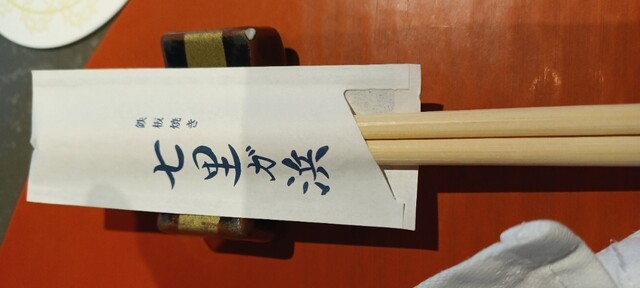 鉄板焼き
七里ガ浜